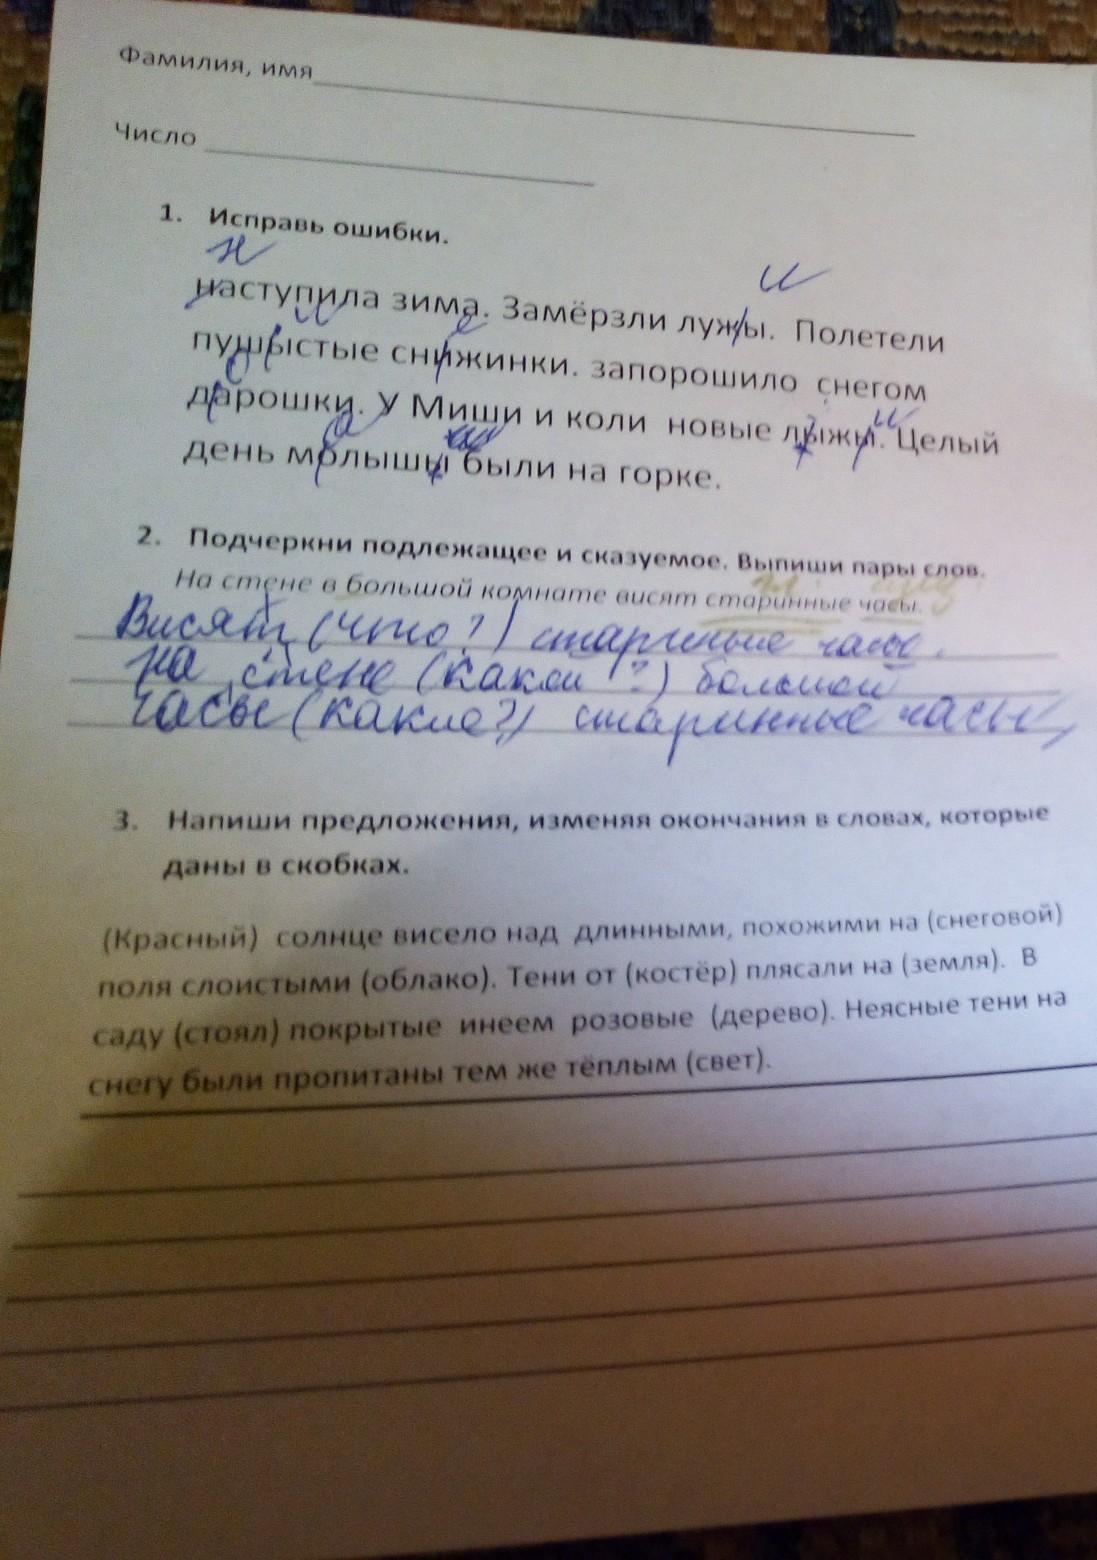 Фамилия, имя
Число
1. Исправь ошибки.
н
и
наступила зима. Замёрзли лужы. Полетели
и е
пушыстые снижинки. запорошило снегом
о
дарошки. У Миши и коли новые лыжы. Целый
и
а
день молышы были на горке.
2. Подчеркни подлежащее и сказуемое. Выпиши пары слов.
На стене в большой комнате висят старинные часы.
Висят (что?) стариные часы.
на стене (какой?) большой
часы (какие?) старинные часы,
3. Напиши предложения, изменяя окончания в словах, которые
даны в скобках.
(Красный) солнце висело над длинными, похожими на (снеговой)
поля слоистыми (облако). Тени от (костёр) плясали на (земля). В
саду (стоял) покрытые инеем розовые (дерево). Неясные тени на
снегу были пропитаны тем же тёплым (свет).